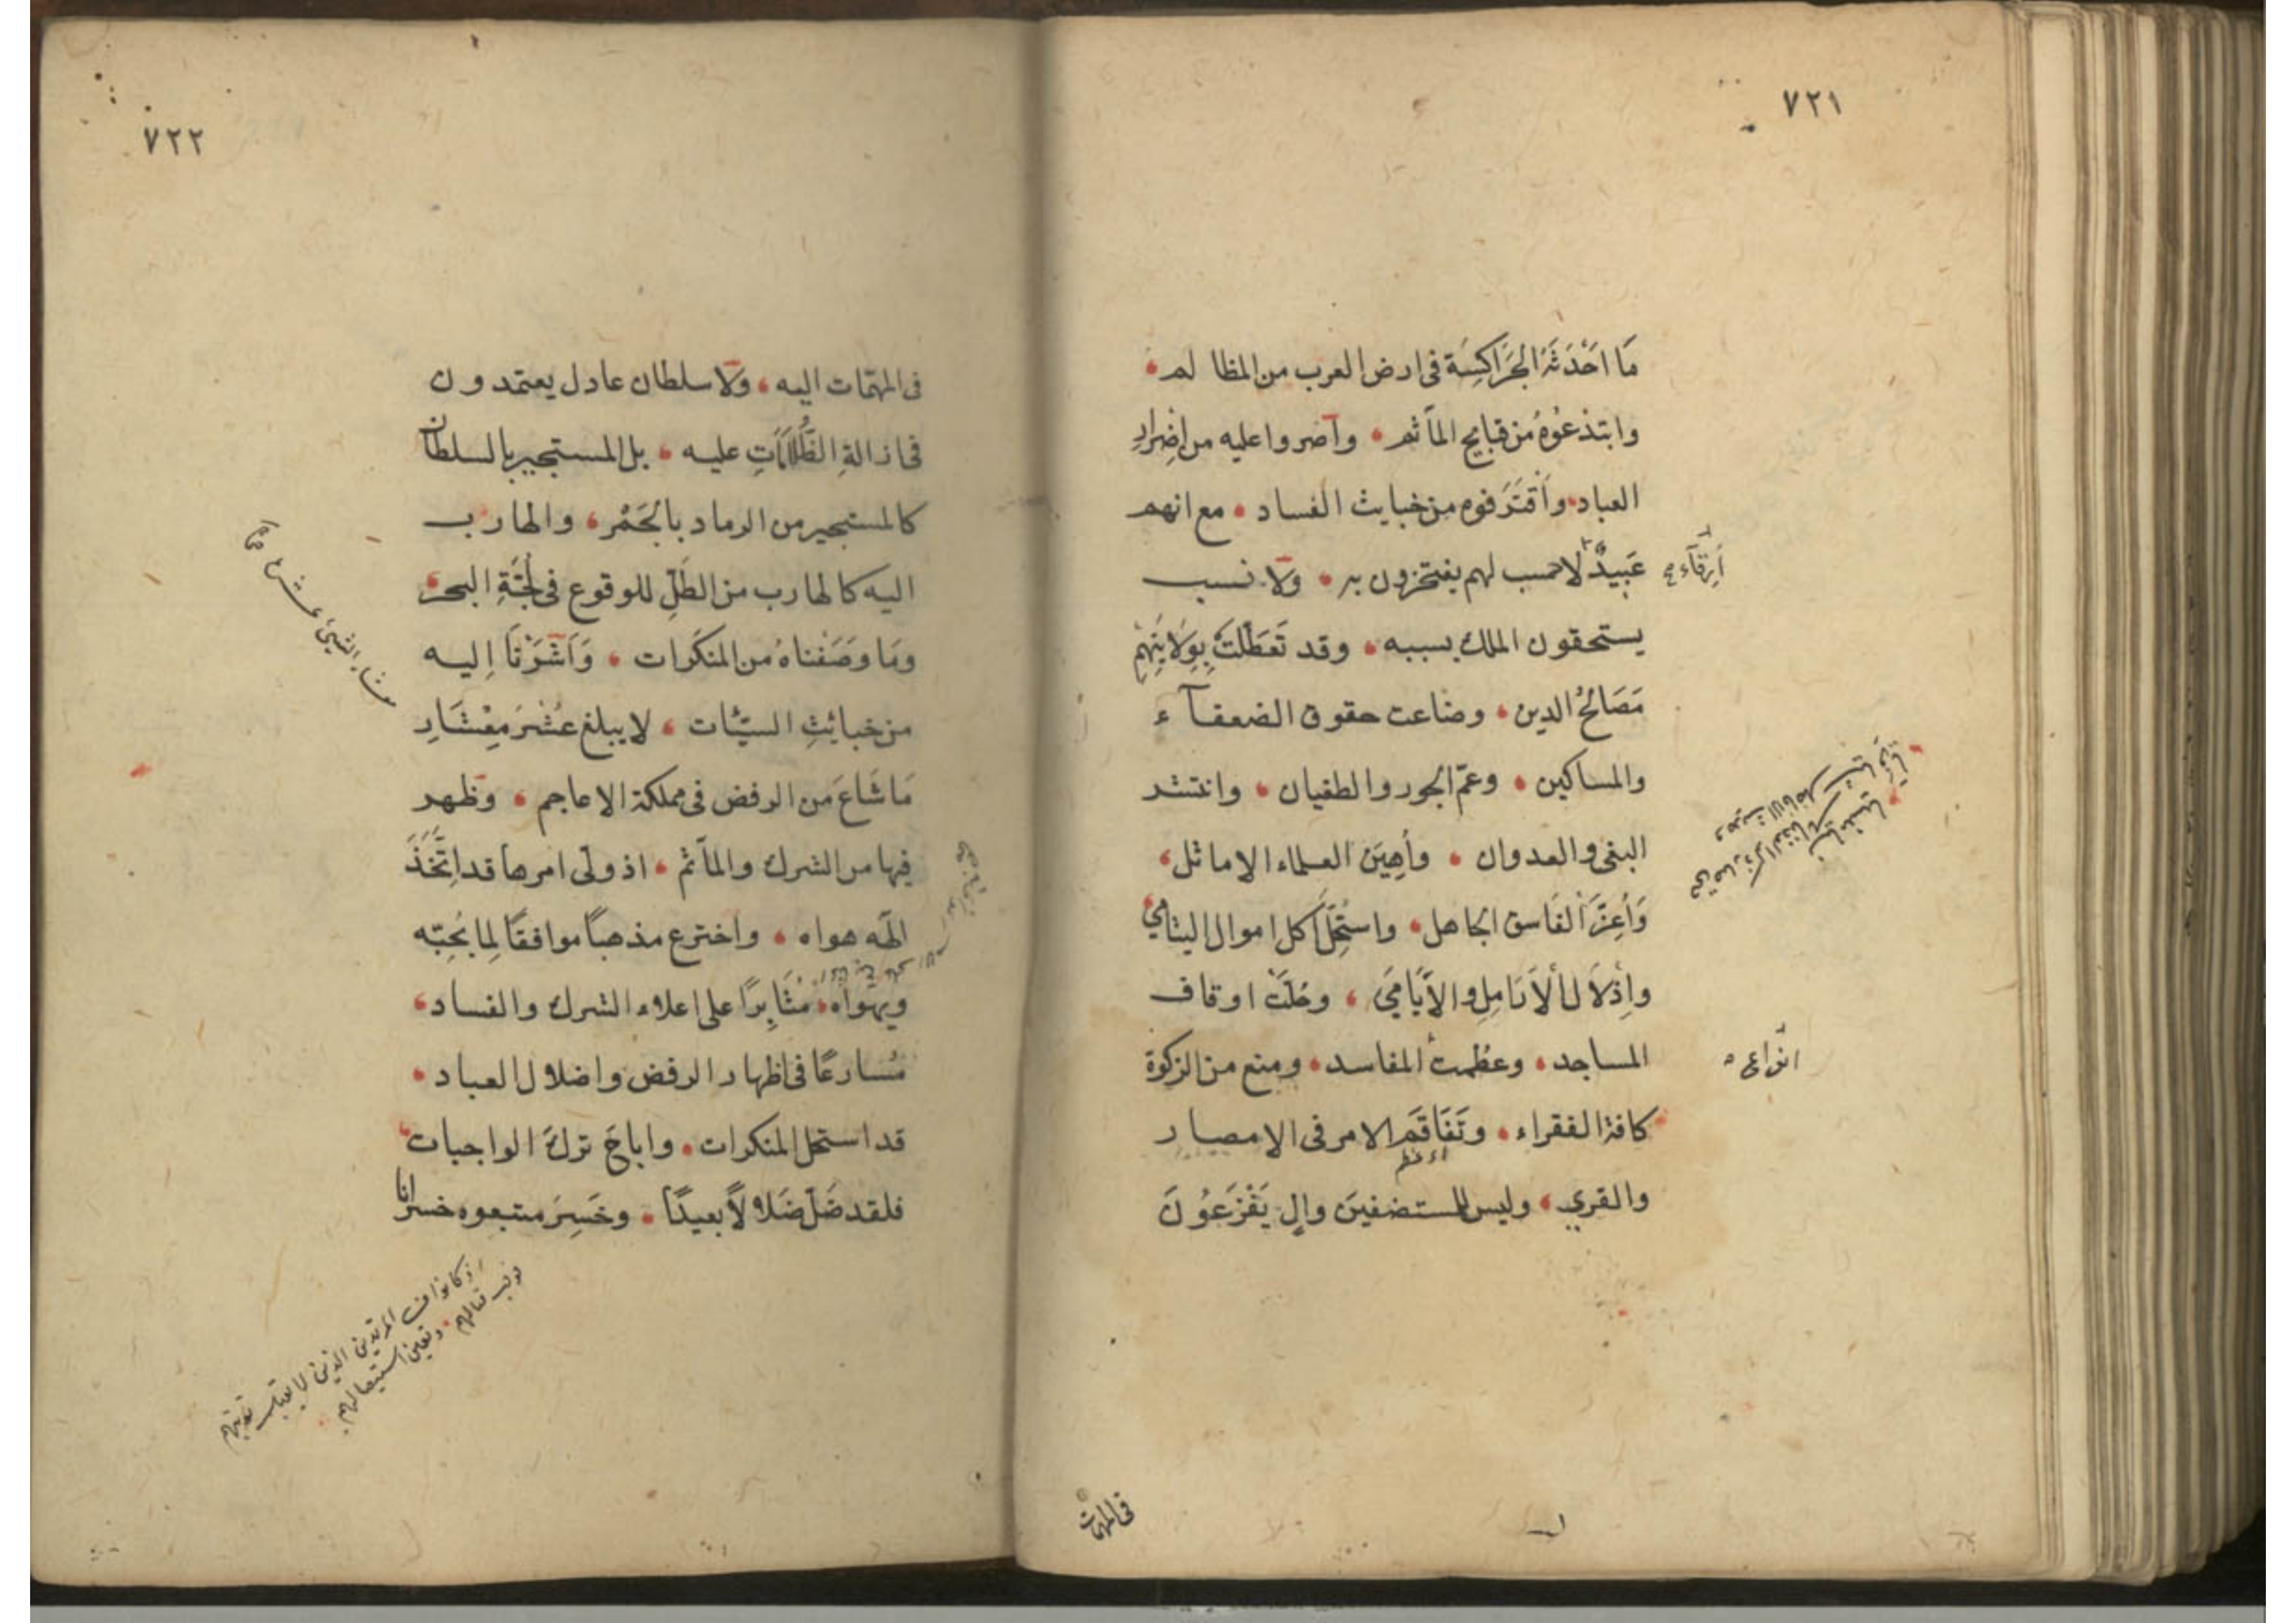 ٧٢١
مَا اَحْدَثَهُ الجَرَاكِسَة فى ارض العرب من المظالم
وابتدعُوهُ من قبايح المآثم وآصروا عليه من اِضرارِ
العباد واَقتَرفوه من خبايث الفساد مع انهم
عَبيدٌ لا حسب لهم يفتخرون به ولا نسب
أرِقّاء صح
يستحقون الملك بسببه وقد تَعَطّلتْ بِوِلايَتِهِم
مَصَالحُ الدين وضاعت حقوق الضعفآء
والمساكين وعمّ الجور والطغيان وانتشر
البغى والعدوان وأُهِينَ العلماء الاماثل
وَأُعِزّ الفَاسق الجاهل واستُحِلَّ اكل اموال اليتامي
واِذلال الأرَامِلِ والاَيَامَي وحُلّتْ اوقاف
المساجد وعظمت المفاسد ومنع من الزكوة
انواع
كافة الفقراء وتَفَاقَمَ الامر فى الامصار
والقري وليس للمستضعفينَ والٍ يَفْزَعُونَ
فى المهمّات
٧٢٢
فى المهمّات اليه ولا سلطان عادل يعتمدون
فى ازالةِ الظُّلَامَاتِ عليه بل المستجير بالسلطان
كالمستجير من الرماد بالجَمْر والهارب
اليه كالهارب من الطَلِّ للوقوع فى لُجَّةِ البحر
ومَا وصَفْناهُ من المنكَرات وَاَشَرْنَا اِليه
من خبائِثِ السيّئات لا يبلغ عُشْرَ مِعْشَارِ
مَا شَاعَ من الرفض فى مملكة الاعاجم وظهر
فيها من الشرك والمآثم اذ ولّى امرها قد اِتَّخَذَ
الٰهَه هواه واخترع مذهباً موافقاً لِما يُحِبّه
ويهواه مُثَابِرًا على اعلاء الشرك والفساد
مُسارعًا فى اظهار الرفض واضلال العباد
قد استحل المنكرات واباحَ تركَ الواجبات
فلقد ضَلّ ضَلالاً بعيدًا وخَسِرَ متبعوه خسرانا
اذ كانوا من المرتدين الذين لا يقبل توبتهم
فوجب قتالهم وتعين استيصالهم